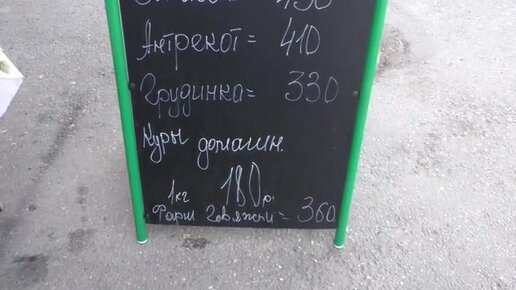 Антрекот = 410
Грудинка = 330
Куры домашн.
1кг 180р
Фарш говяжий = 360